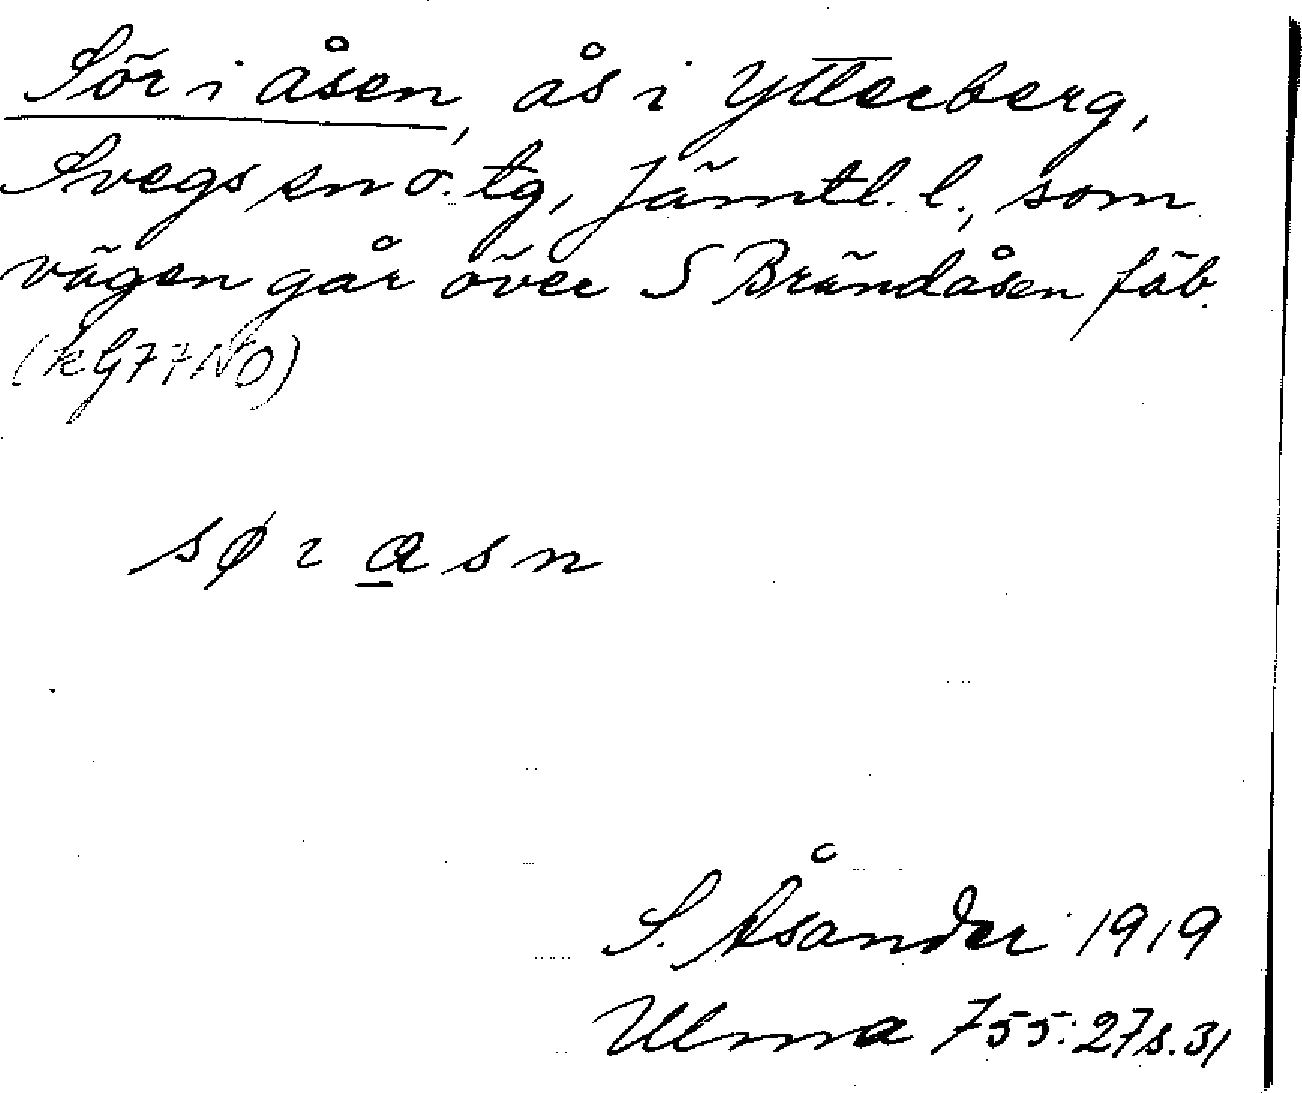 Sör i åsen, ås i Ytterberg,
Svegs sn o. tg, Jämtl. l., som
vägen går över S Brändåsen fäb.
(kG77NO)
sø ɩ a s n
S. Åsander 1919
Ulma 755:27 s. 31